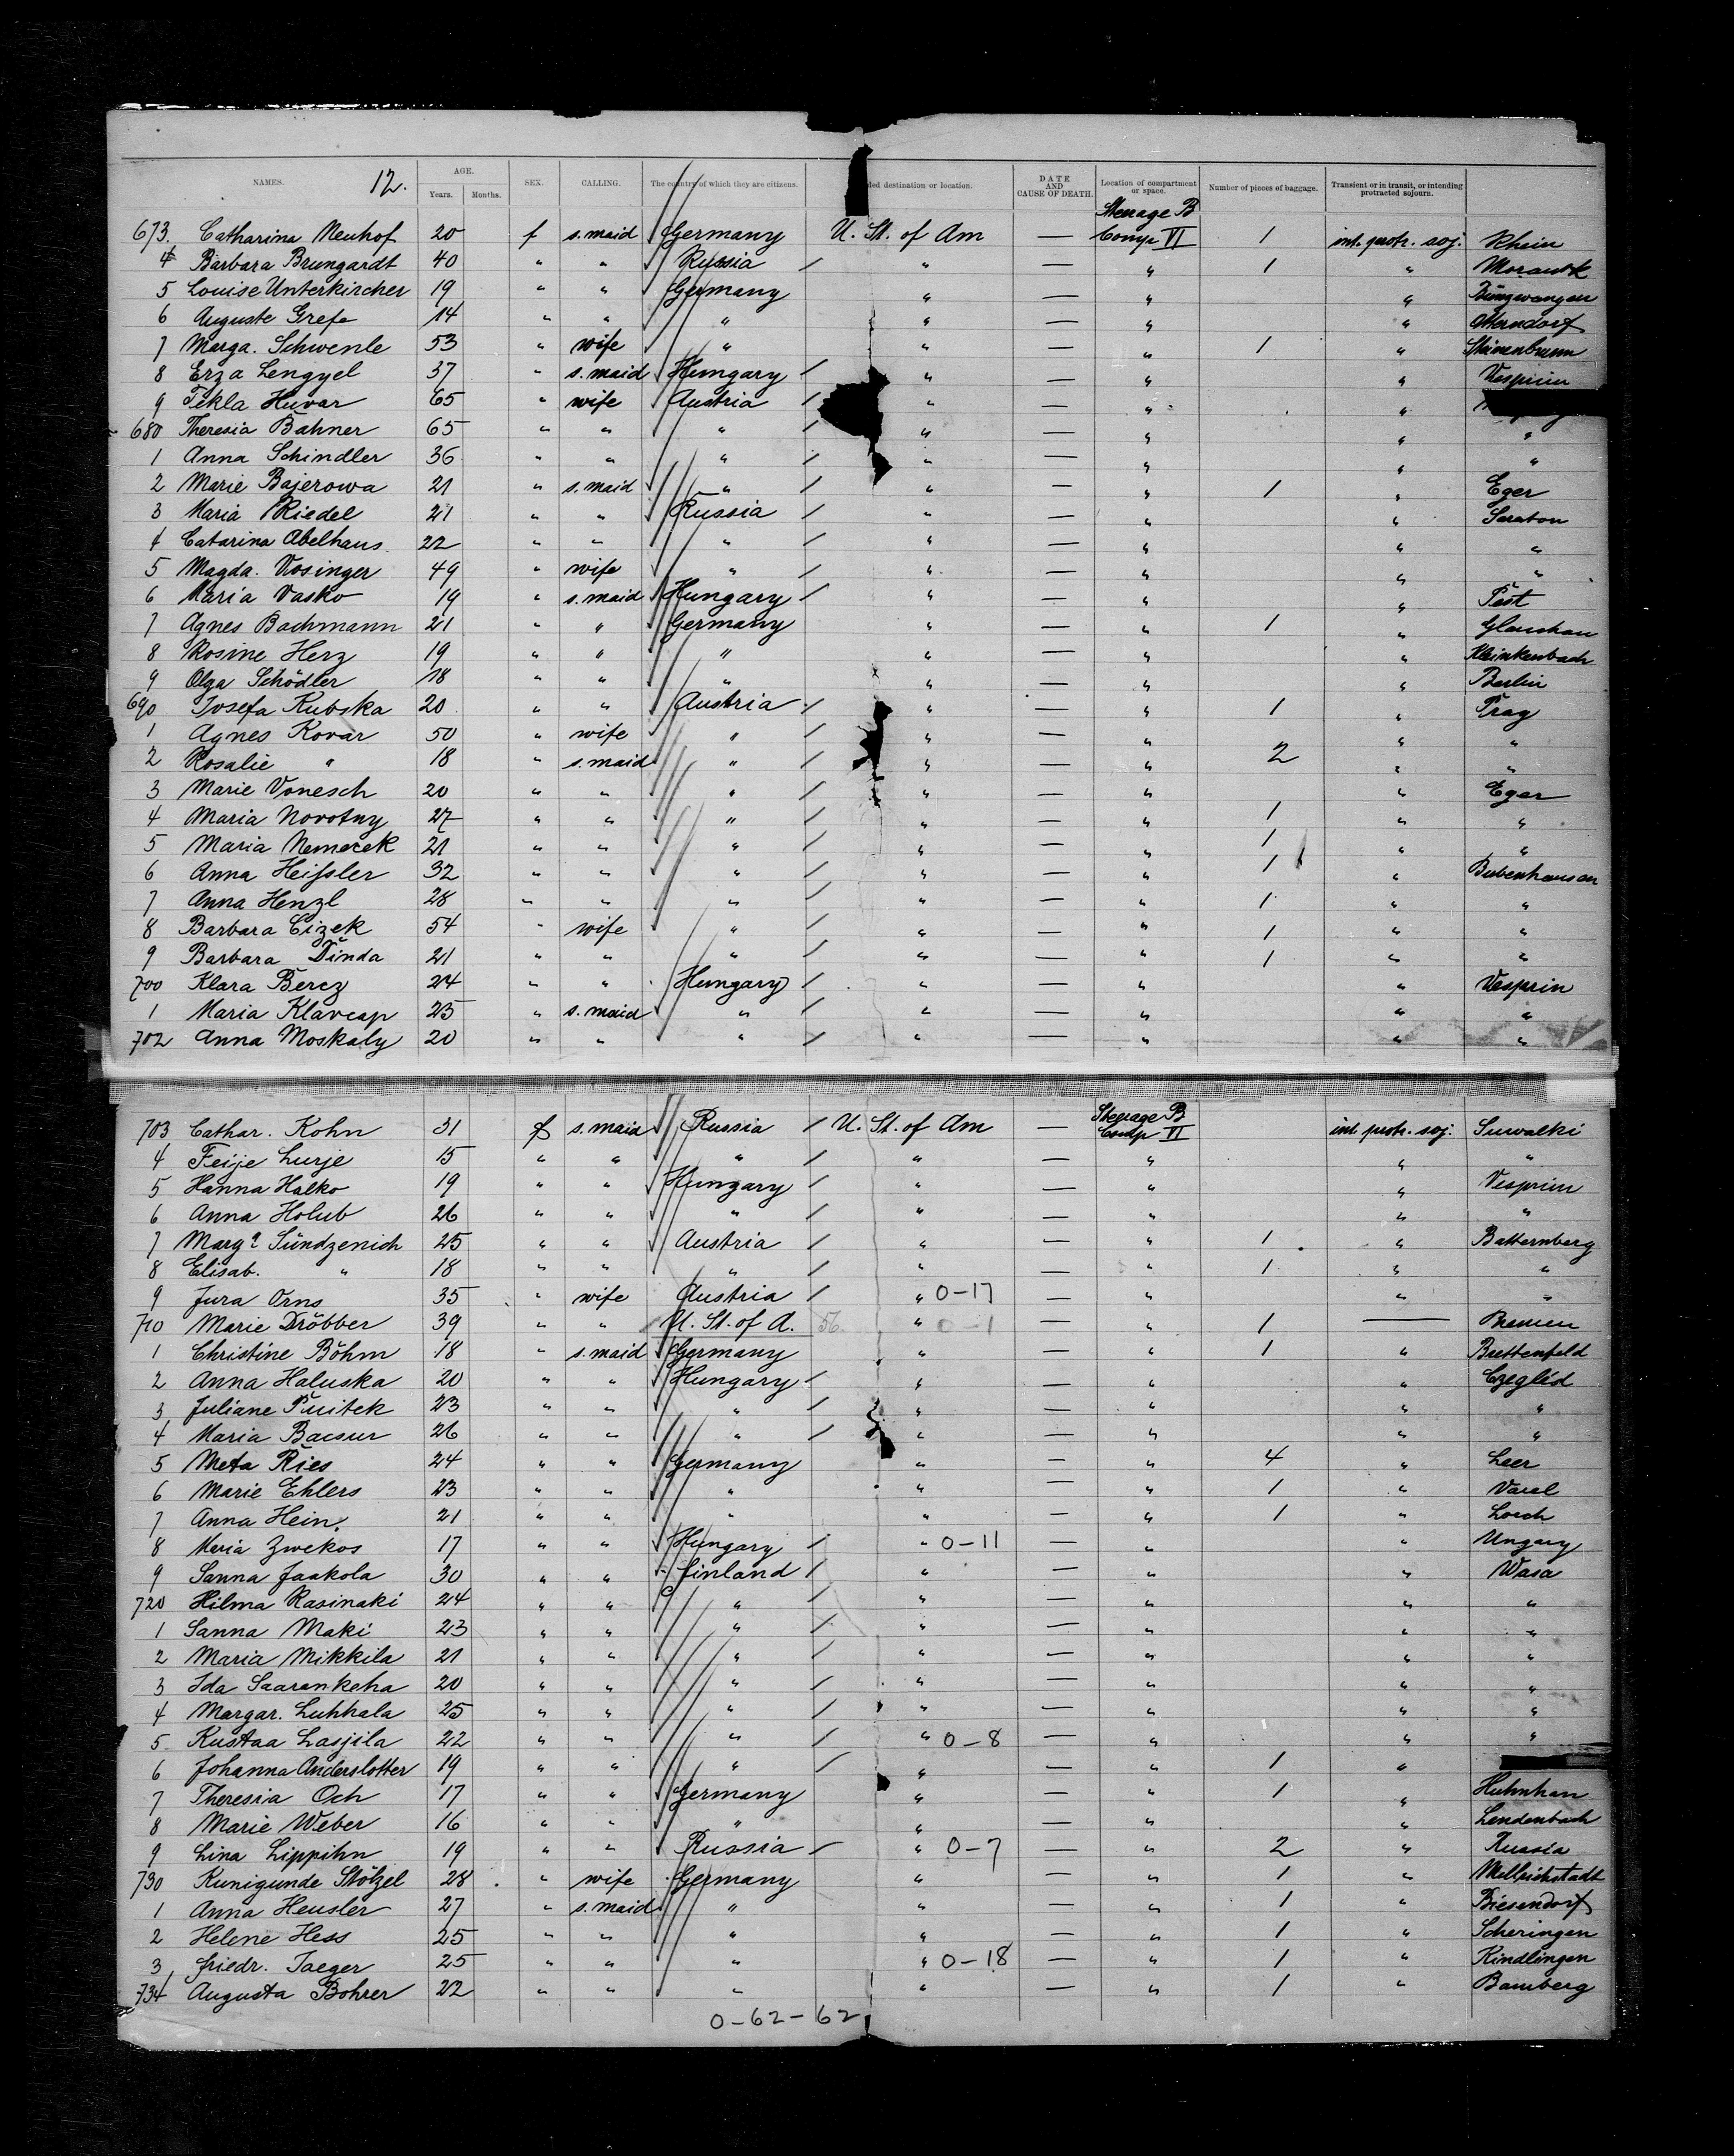 NAMES. 12. AGE. Years. Months. SEX. CALLING. The country of which they are citizens. ded destination or location. DATE AND CAUSE OF DEATH. Location of compartment or space. Number of pieces of baggage. Transient or in transit, or intending protracted sojourn.
673. Catharina Neuhof 20 f s. maid Germany U. St. of Am — Steerage B Comp VI 1 int. protr. soj. Rhein
4 Barbara Brungardt 40 " " Russia / " — " 1 "
5 Louise Unterkircher 19 " " Germany " — " "
6 Auguste Grefe 14 " " " " — " " Otterndorf
7 Marga. Schwenle 53 " wife " " — " 1 " Steinenbrunn
8 Erza Lengyel 37 " s. maid Hungary / " — " " Vesprim
9 Tekla Huvar 65 " wife Austria / " — " "
680 Theresia Bahner 65 " " " / " — " " "
1 Anna Schindler 36 " " " / " — " " "
2 Marie Bajerowa 21 " s. maid " / " — " 1 " Eger
3 Maria Riedel 21 " " Russia / " — " " Saratow
4 Catarina Abelhaus 22 " " " / " — " " "
5 Magda. Vosinger 49 " wife " / " — " " "
6 Maria Vasko 19 " s. maid Hungary / " — " " Pest
7 Agnes Bachmann 21 " " Germany " — " 1 " Glauchau
8 Rosine Herz 19 " " " " — " " Kleinkenbach
9 Olga Schödler 18 " " " " — " " Berlin
690 Josefa Kubska 20 " " Austria / " — " 1 " Prag
1 Agnes Kovar 50 " wife " / " — " " "
2 Rosalie " 18 " s. maid " / " — " 2 " "
3 Marie Vonesch 20 " " " / " — " " Eger
4 Maria Novotny 27 " " " / " — " 1 " "
5 Maria Nemecek 21 " " " / " — " 1 " "
6 Anna Heissler 32 " " " / " — " 1 " Bubenhausen
7 Anna Henzl 28 " " " / " — " 1 " "
8 Barbara Cizek 54 " wife " / " — " 1 " "
9 Barbara Dinda 21 " " " / " — " 1 " "
700 Klara Berez 24 " " Hungary / " — " " Vesprin
1 Maria Klavcap 25 " s. maid " / " — " " "
702 Anna Moskaly 20 " " " / " — " " "
703 Cathar. Kohn 31 f s. maid Russia / U. St. of Am — Steerage B Comp VI int. protr. soj. Suwalki
4 Feije Lurje 15 " " " / " — " " "
5 Hanna Halko 19 " " Hungary / " — " " Vesprim
6 Anna Holub 26 " " " / " — " " "
7 Marg. Sündzenich 25 " " Austria / " — " 1 " Batternberg
8 Elisab. " 18 " " " / " — " 1 " "
9 Jura Orns 35 " wife Austria / " 0-17 — " " "
710 Marie Dröbber 39 " " U. St. of A. 56 " 0-1 — " 1 — Bremen
1 Christine Böhm 18 " s. maid Germany " — " 1 " Brettenfeld
2 Anna Haluska 20 " " Hungary / " — " " Czegléd
3 Juliane Puitek 23 " " " / " — " " "
4 Maria Bacsur 26 " " " / " — " " "
5 Meta Ries 24 " " Germany " — " 4 " Leer
6 Marie Ehlers 23 " " " " — " 1 " Varel
7 Anna Hein. 21 " " " " — " 1 " Lorch
8 Maria Zwekos 17 " " Hungary / " 0-11 — " " Ungary
9 Sanna Jaakola 30 " " Finland / " — " " Wasa
720 Hilma Rasinaki 24 " " " / " — " " "
1 Sanna Maki 23 " " " / " — " " "
2 Maria Mikkila 21 " " " / " — " " "
3 Ida Saarankeha 20 " " " / " — " " "
4 Margar. Luhhala 25 " " " / " — " " "
5 Kustaa Lasjila 22 " " " / " 0-8 — " " "
6 Johanna Anderslotter 19 " " " / " — " 1 "
7 Theresia Och 17 " " Germany " — " 1 " Huhnhan
8 Marie Weber 16 " " " " — " " Lendenbach
9 Lina Lippihn 19 " " Russia / " 0-7 — " 2 " Russia
730 Kunigunde Stölzel 28 " wife Germany " — " 1 " Mellrichstadt
1 Anna Heusler 27 " s. maid " " — " 1 " Biesendorf
2 Helene Hess 25 " " " " — " 1 " Scheringen
3 Friedr. Jaeger 25 " " " " 0-18 — " 1 " Kindlingen
734 Augusta Bohrer 22 " " " " — " 1 " Bamberg
0-62-62